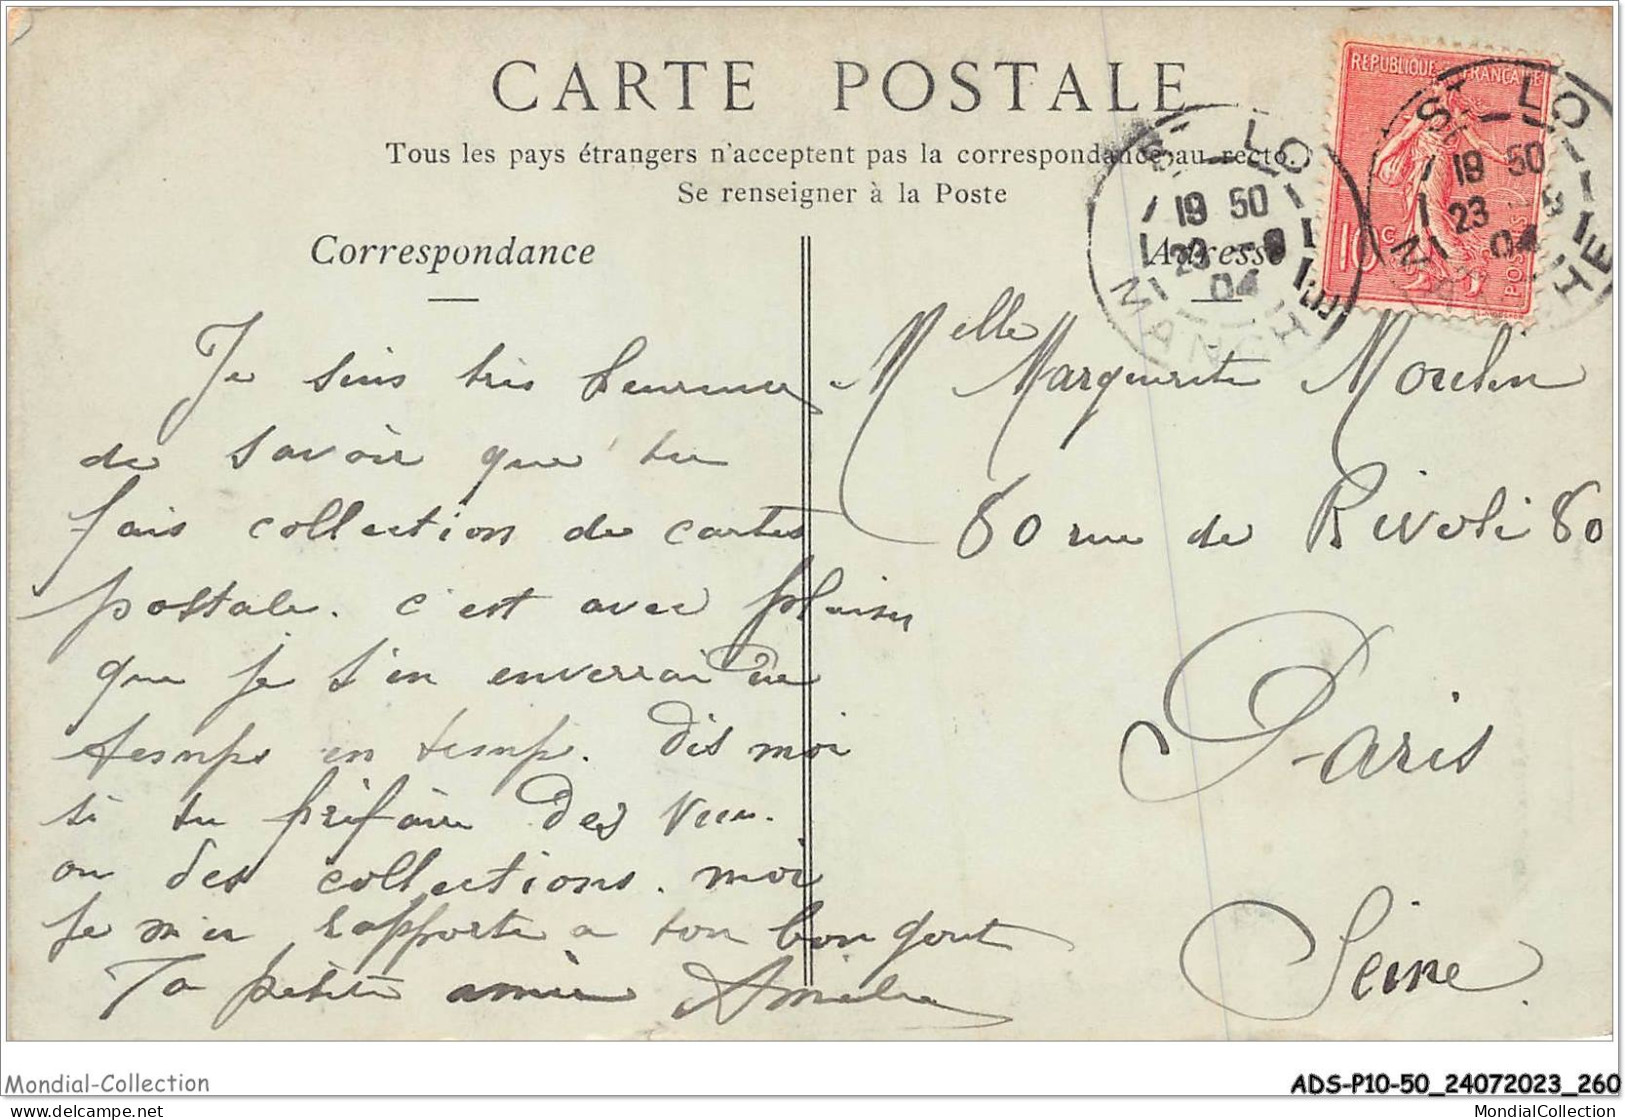 CARTE POSTALE
Tous les pays étrangers n'acceptent pas la correspondance au recto.
Se renseigner à la Poste
Correspondance
Adresse
REPUBLIQUE FRANÇAISE
10c
POSTES
ST LO
19 50
23 - 9
04
MANCHE
ST LO
19 50
23 - 9
04
MANCHE
Je suis très heureuse
de savoir que tu
fais collection de cartes
postale. c'est avec plaisir
que je t'en enverrai de
temps en temps. dis moi
si tu préfère des vues.
ou des collections. moi
je m'en rapporte a ton bon gout
Ta petite amie Amelie
Melle Marguerite Moulin
80 rue de Rivoli 80
Paris
Seine.
Mondial-Collection
ADS-P10-50_24072023_260
www.delcampe.net
MondialCollection